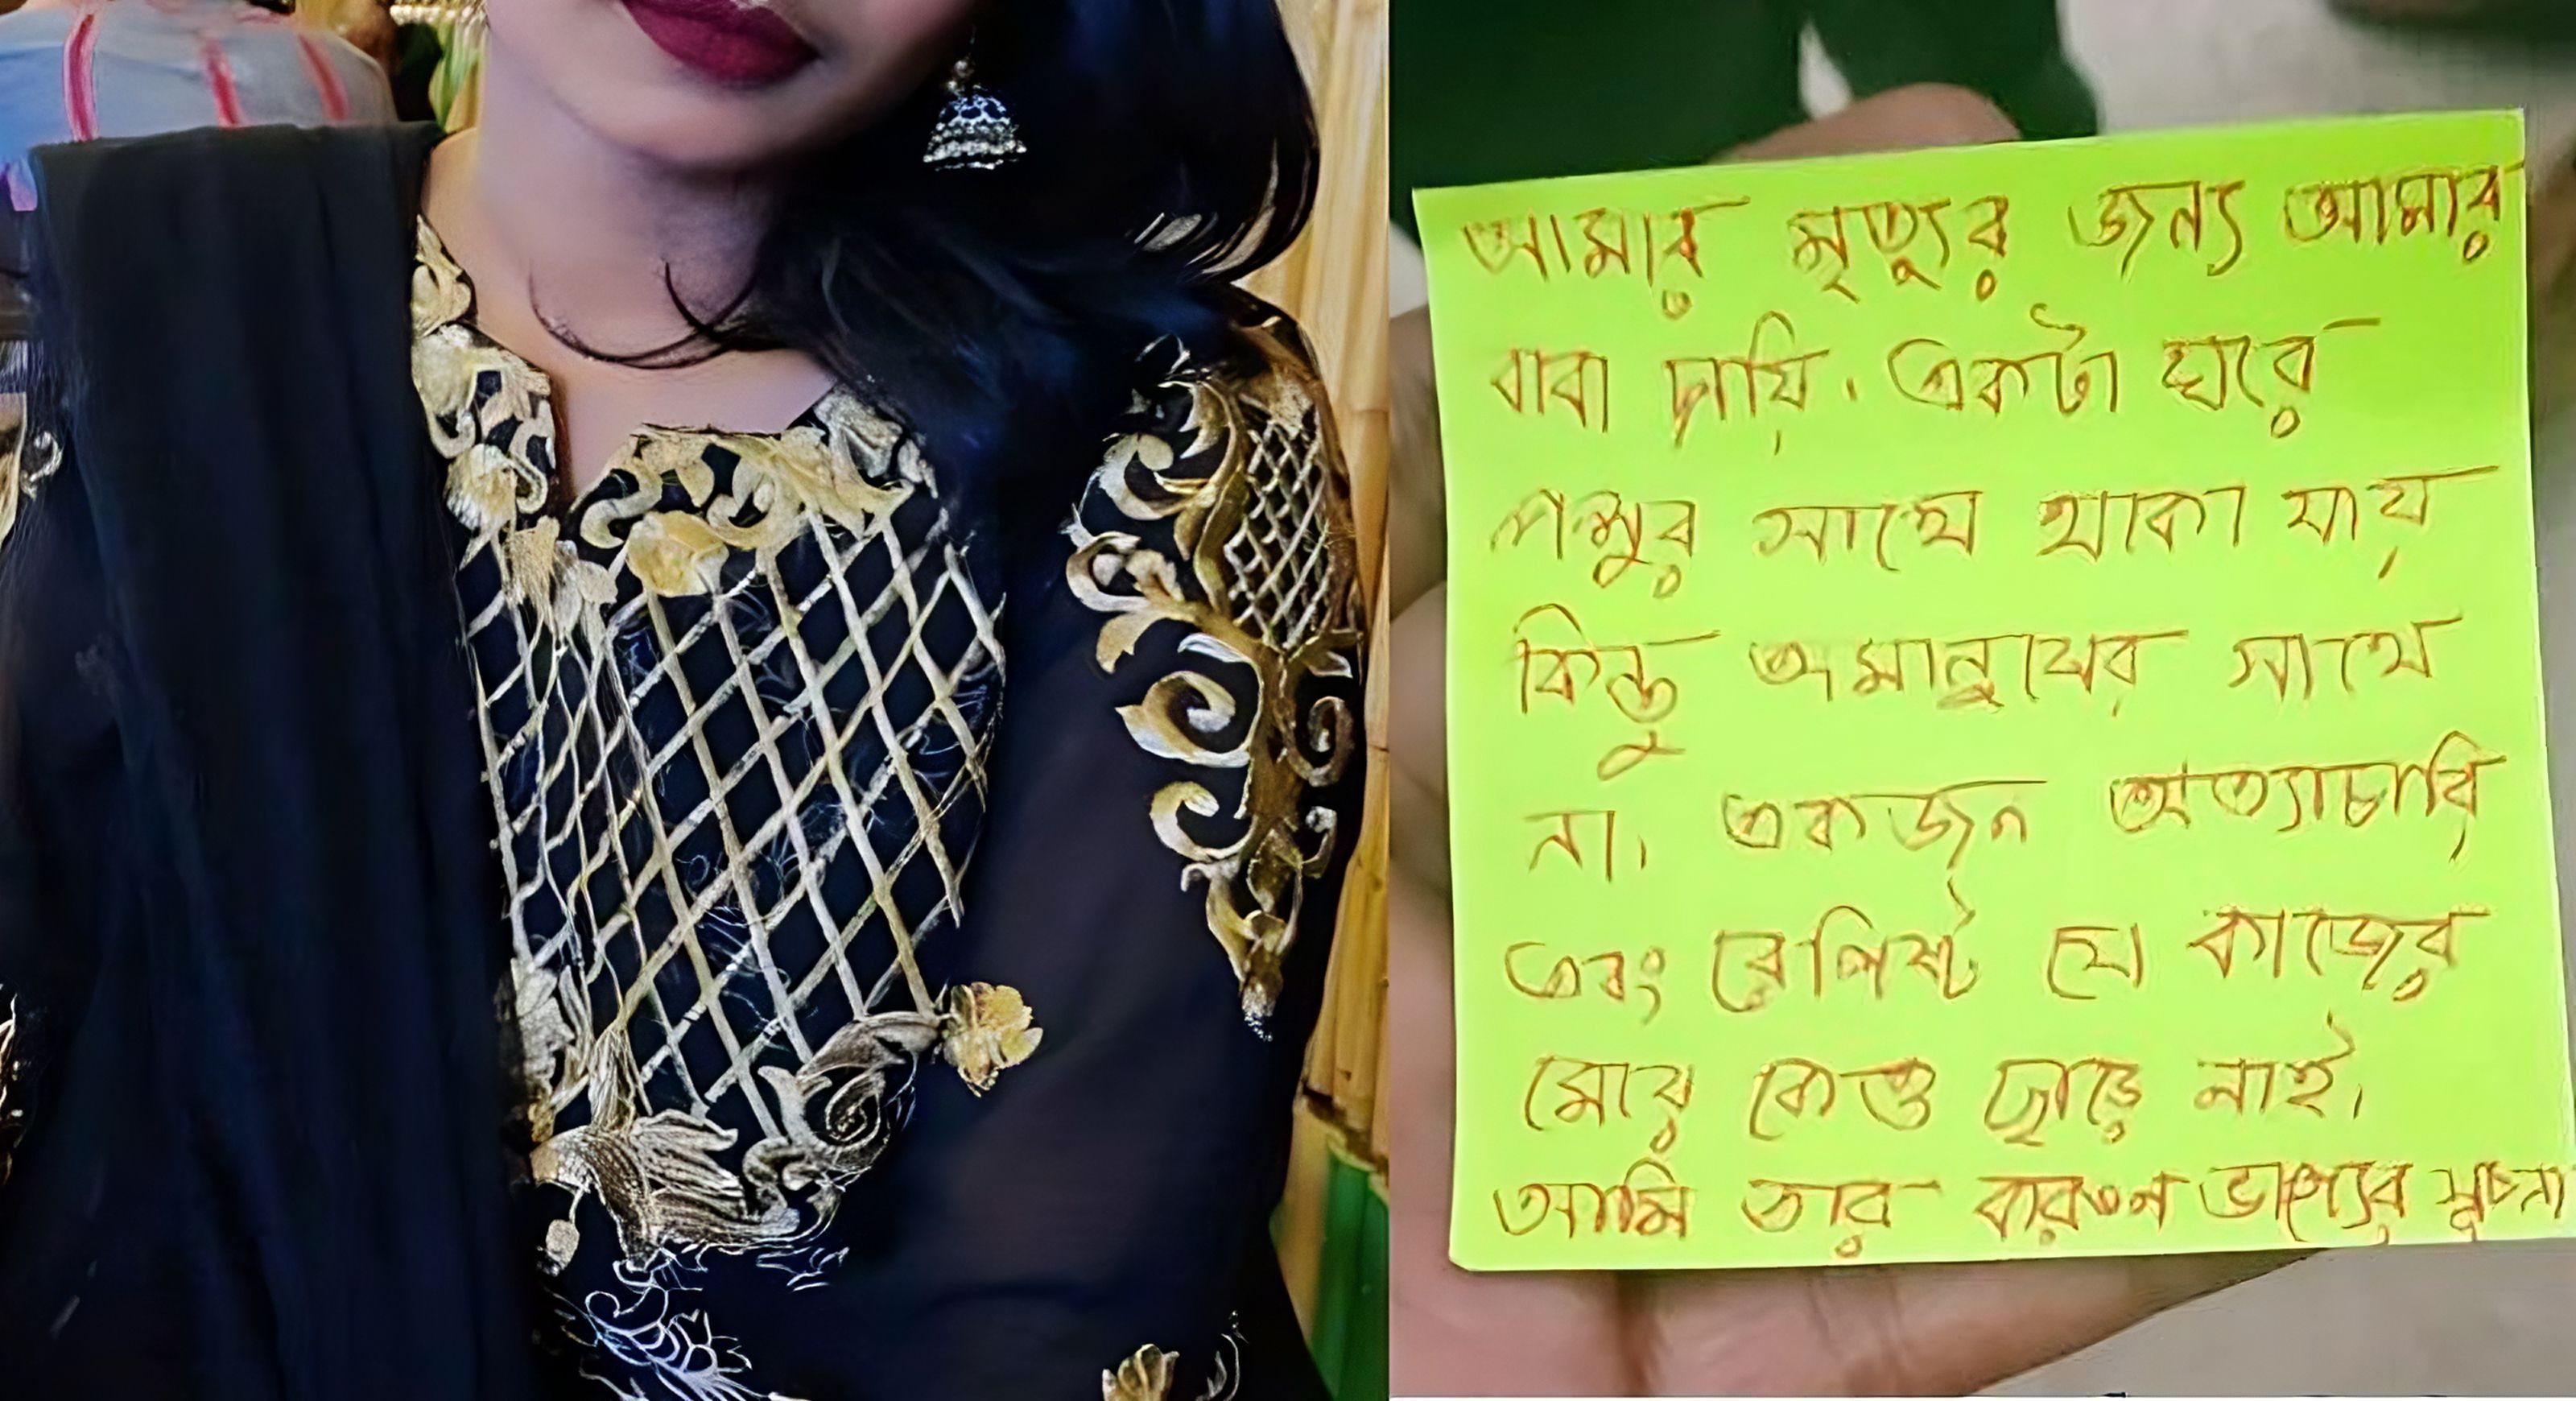 আমার মৃত্যুর জন্য আমার
বাবা দায়ি. একটা ঘরে
পশুর সাথে থাকা যায়
কিন্তু অমানুষের সাথে
না। একজন অত্যাচারি
এবং রেপিষ্ট যে কাজের
মেয়ে কেও ছাড়ে নাই।
আমি তার করুণ ভাগ্যের সূচনা